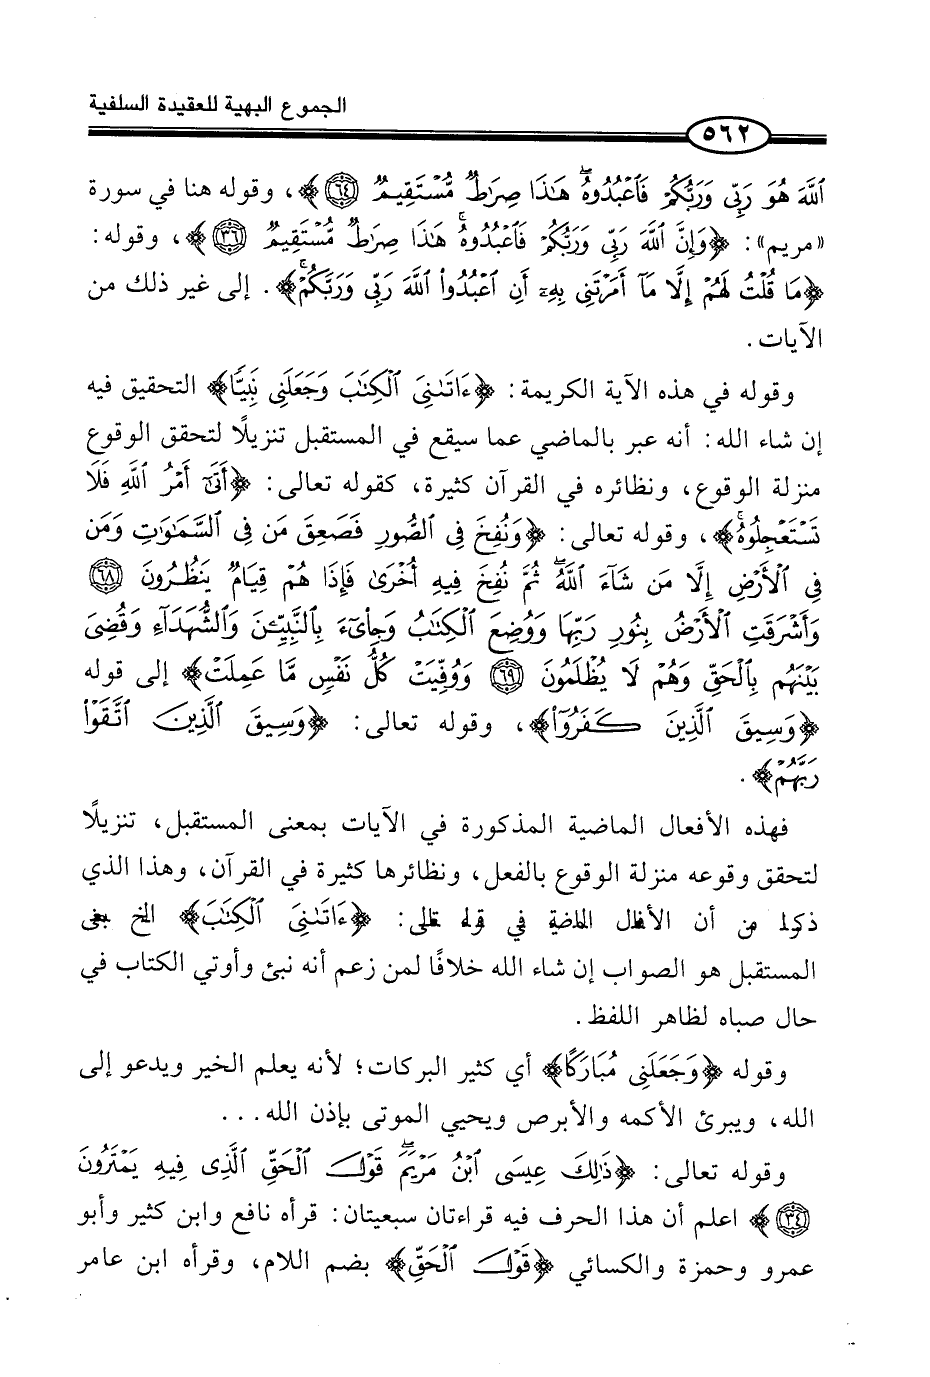 الجموع البهية للعقيدة السلفية
٥٦٢
ٱللَّهَ هُوَ رَبِّى وَرَبُّكُمْ فَٱعْبُدُوهُۚ هَٰذَا صِرَٰطٌ مُّسْتَقِيمٌ ﴿٦٤﴾، وقوله هنا في سورة
«مريم»: ﴿وَإِنَّ ٱللَّهَ رَبِّى وَرَبُّكُمْ فَٱعْبُدُوهُۚ هَٰذَا صِرَٰطٌ مُّسْتَقِيمٌ ٣٦﴾، وقوله:
﴿مَا قُلْتُ لَهُمْ إِلَّا مَآ أَمَرْتَنِى بِهِۦٓ أَنِ ٱعْبُدُوا۟ ٱللَّهَ رَبِّى وَرَبَّكُمْۚ﴾. إلى غير ذلك من
الآيات.
وقوله في هذه الآية الكريمة: ﴿ءَاتَىٰنِىَ ٱلْكِتَٰبَ وَجَعَلَنِى نَبِيًّا﴾ التحقيق فيه
إن شاء الله: أنه عبر بالماضي عما سيقع في المستقبل تنزيلًا لتحقق الوقوع
منزلة الوقوع، ونظائره في القرآن كثيرة، كقوله تعالى: ﴿أَتَىٰٓ أَمْرُ ٱللَّهِ فَلَا
تَسْتَعْجِلُوهُۚ﴾، وقوله تعالى: ﴿وَنُفِخَ فِى ٱلصُّورِ فَصَعِقَ مَن فِى ٱلسَّمَٰوَٰتِ وَمَن
فِى ٱلْأَرْضِ إِلَّا مَن شَآءَ ٱللَّهُۖ ثُمَّ نُفِخَ فِيهِ أُخْرَىٰ فَإِذَا هُمْ قِيَامٌ يَنظُرُونَ ٦٨
وَأَشْرَقَتِ ٱلْأَرْضُ بِنُورِ رَبِّهَا وَوُضِعَ ٱلْكِتَٰبُ وَجِا۟ىٓءَ بِٱلنَّبِيِّـۧنَ وَٱلشُّهَدَآءِ وَقُضِىَ
بَيْنَهُم بِٱلْحَقِّ وَهُمْ لَا يُظْلَمُونَ ٦٩ وَوُفِّيَتْ كُلُّ نَفْسٍ مَّا عَمِلَتْ﴾ إلى قوله
﴿وَسِيقَ ٱلَّذِينَ كَفَرُوٓا۟﴾، وقوله تعالى: ﴿وَسِيقَ ٱلَّذِينَ ٱتَّقَوْا۟
رَبَّهُمْ﴾.
فهذه الأفعال الماضية المذكورة في الآيات بمعنى المستقبل، تنزيلًا
لتحقق وقوعه منزلة الوقوع بالفعل، ونظائرها كثيرة في القرآن، وهذا الذي
ذكرنا من أن الأفعال الماضية في قوله تعالى: ﴿ءَاتَىٰنِىَ ٱلْكِتَٰبَ﴾ الخ بمعنى
المستقبل هو الصواب إن شاء الله خلافًا لمن زعم أنه نبئ وأوتي الكتاب في
حال صباه لظاهر اللفظ.
وقوله ﴿وَجَعَلَنِى مُبَارَكًا﴾ أي كثير البركات؛ لأنه يعلم الخير ويدعو إلى
الله، ويبرئ الأكمه والأبرص ويحيي الموتى بإذن الله...
وقوله تعالى: ﴿ذَٰلِكَ عِيسَى ٱبْنُ مَرْيَمَۖ قَوْلَ ٱلْحَقِّ ٱلَّذِى فِيهِ يَمْتَرُونَ
٣٤﴾ اعلم أن هذا الحرف فيه قراءتان سبعيتان: قرأه نافع وابن كثير وأبو
عمرو وحمزة والكسائي ﴿قَوْلُ ٱلْحَقِّ﴾ بضم اللام، وقرأه ابن عامر